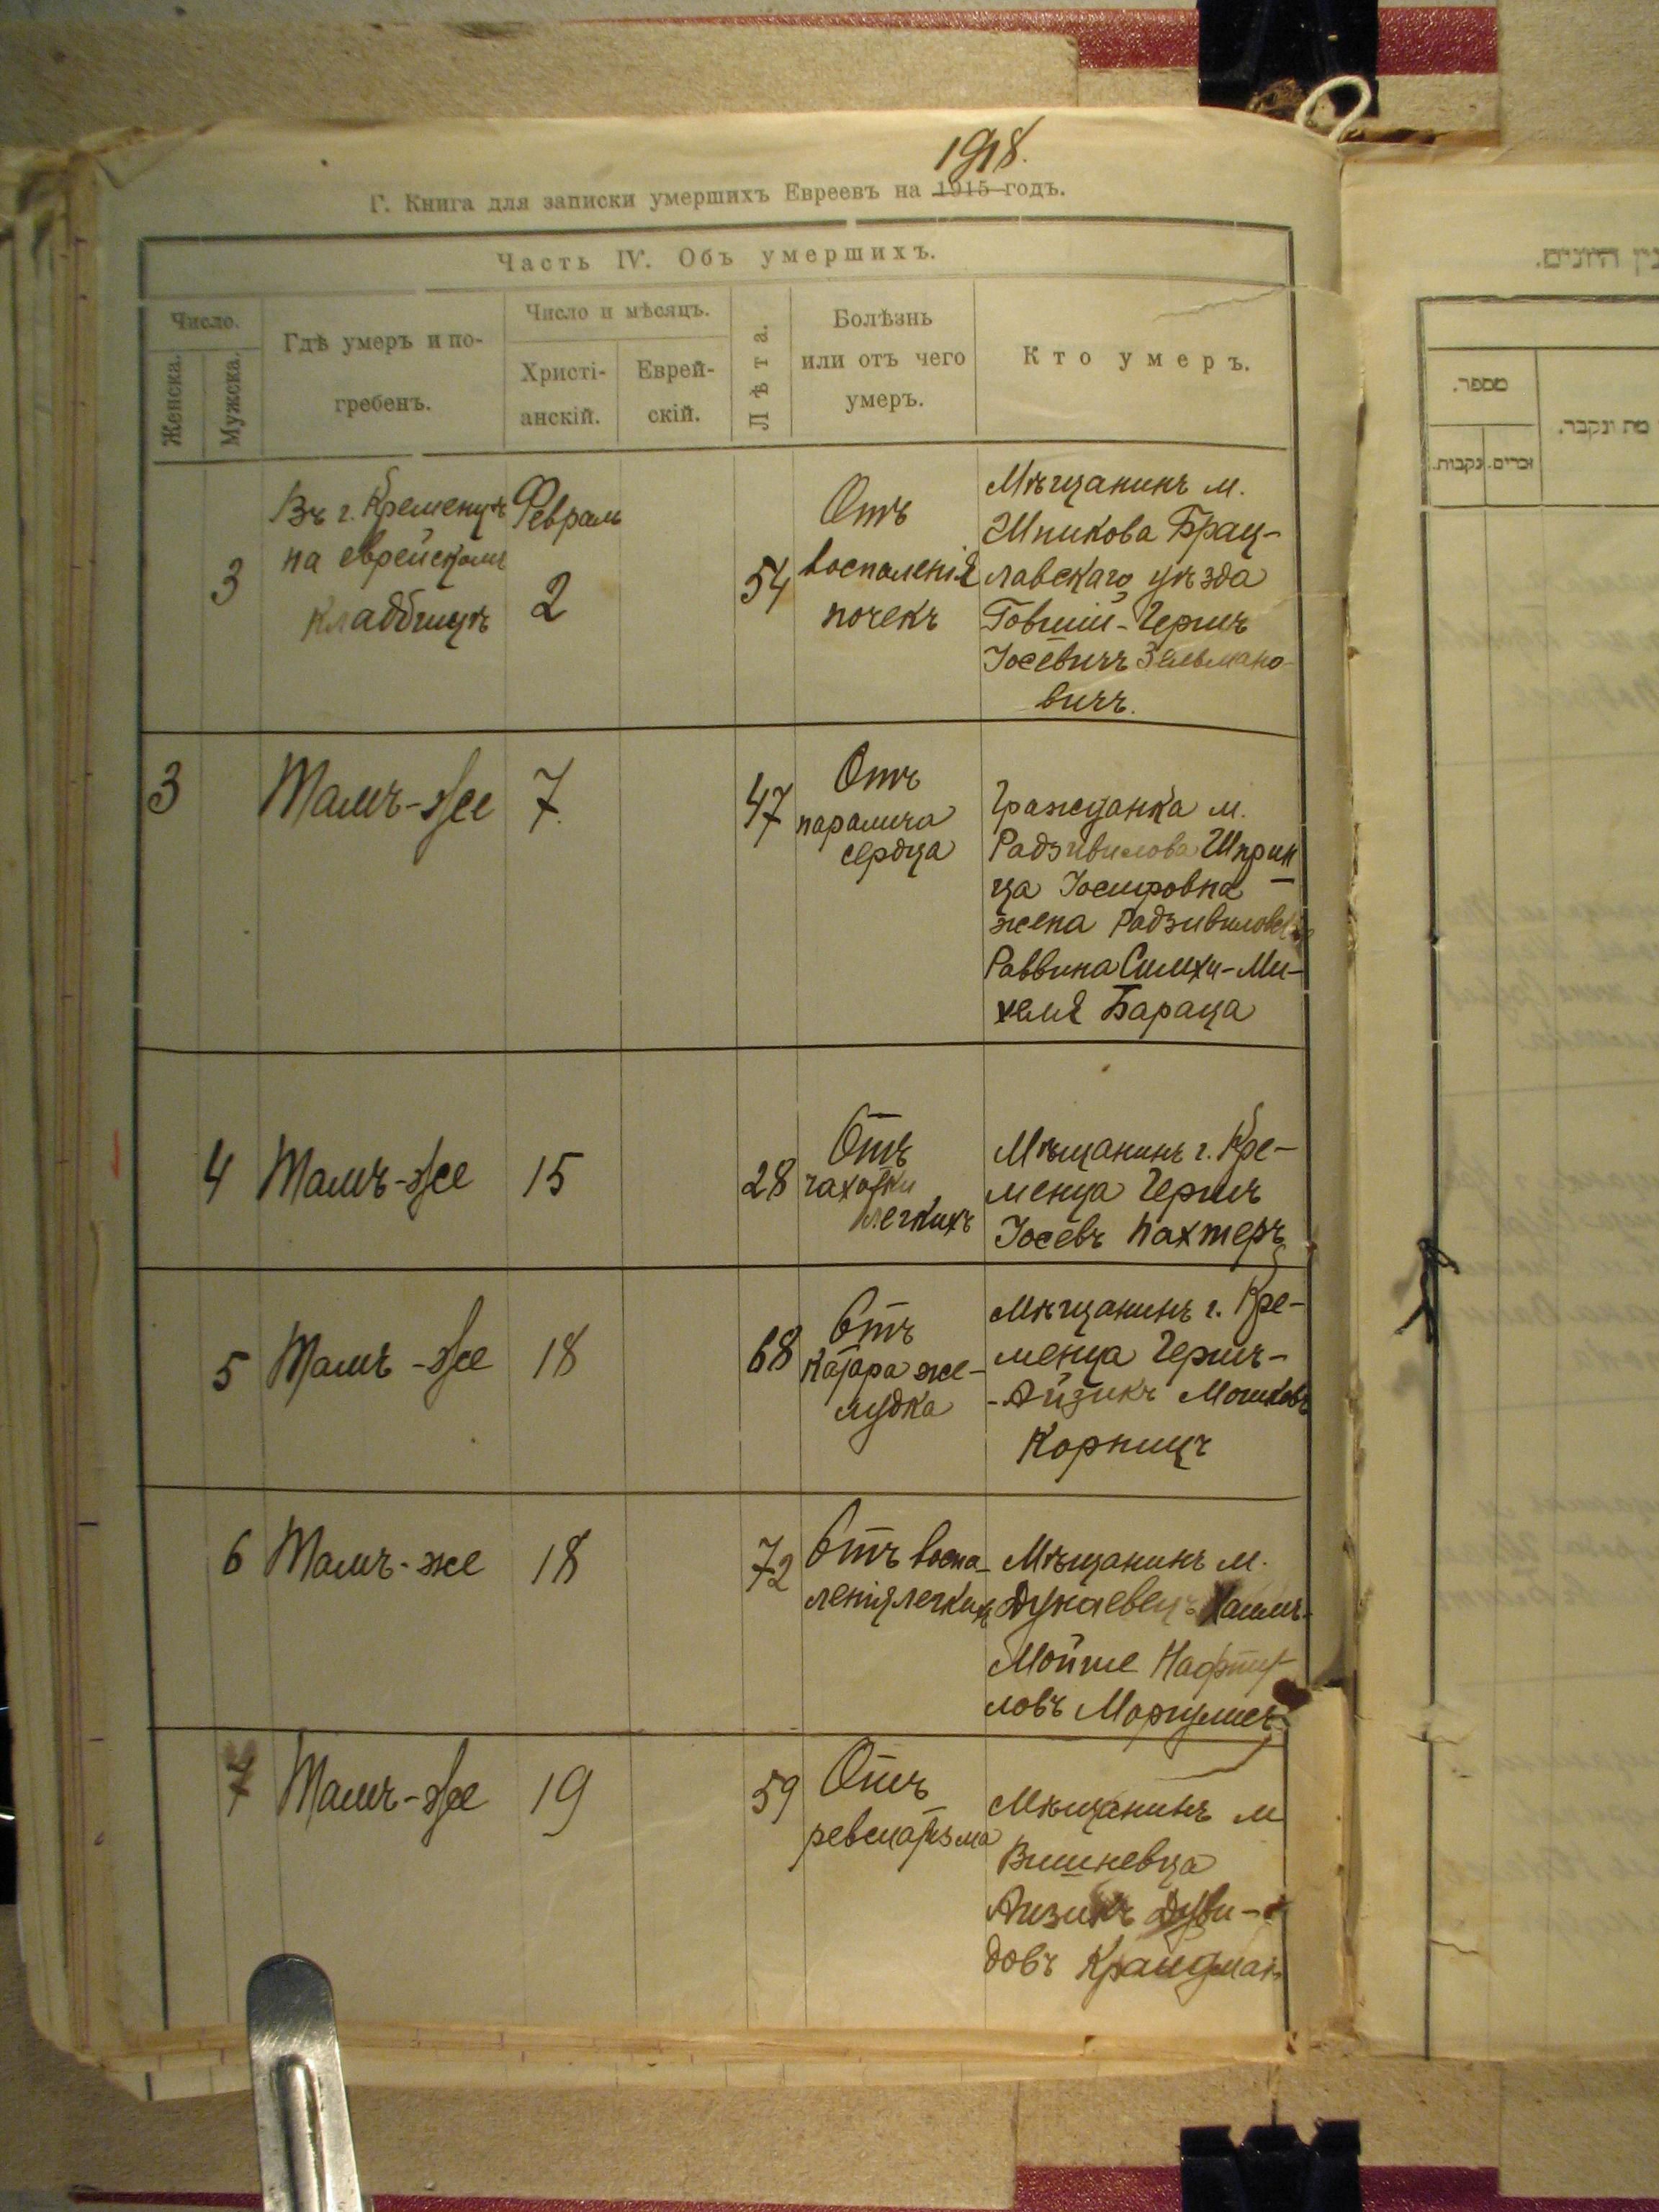 1918.
Г. Книга для записки умершихъ Евреевъ на 1915 годъ.
Часть IV. Объ умершихъ.
Число.
Женска.
Мужска.
Гдѣ умеръ и по-
гребенъ.
Число и мѣсяцъ.
Христі-
анскій.
Еврей-
скій.
Лѣта.
Болѣзнь
или отъ чего
умеръ.
Кто умеръ.
3
Въ г. Кременцѣ
на еврейскомъ
кладбищѣ
Февраль
2
54
Отъ
воспаленія
почекъ
Мѣщанинъ м.
Шпикова Брац-
лавскаго уѣзда
Говшій-Гершъ
Іосевичъ Зельмано-
вичъ.
3
Тамъ-же
7
47
Отъ
паралича
сердца
Гражданка м.
Радзивилова Шприн
ца Іосифовна
жена Радзивиловск
Раввина Симхи-Ми-
хеля Бараца
4
Тамъ-же
15
28
Отъ
чахотки
легкихъ
Мѣщанинъ г. Кре-
менца Гершъ
Іосевъ Пахтеръ
5
Тамъ-же
18
68
Отъ
катара же-
лудка
Мѣщанинъ г. Кре-
менца Гершъ-
-Айзикъ Мошковъ
Корницъ
6
Тамъ-же
18
72
Отъ воспа-
ленія легкихъ
Мѣщанинъ м.
Дунаевецъ Хаимъ-
Мойше Нафту-
ловъ Маргулисъ
7
Тамъ-же
19
59
Отъ
ревматизма
Мѣщанинъ м
Вишневца
Аизикъ Дуви-
довъ Крайдман
מספר.
זכרים.
נקבות.
מת ונקבר.